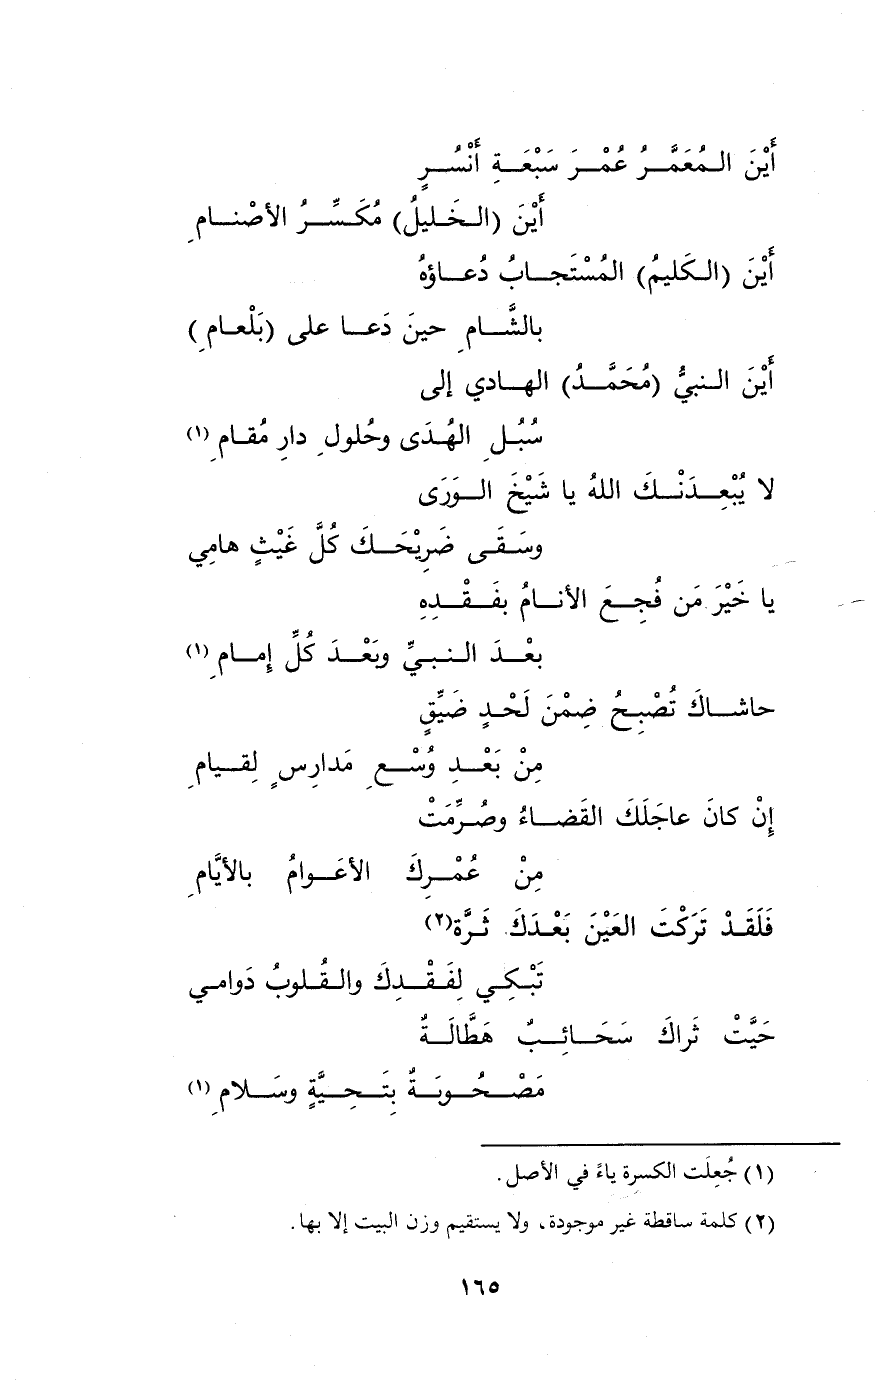 أَيْنَ الـمُعَمَّـرُ عُمْـرَ سَبْعَـةِ أَنْسُـرٍ
أَيْنَ (الـخَـليلُ) مُكَـسِّـرُ الأصْنـامِ
أَيْنَ (الـكَليمُ) المُسْتَجـابُ دُعـاؤهُ
بالشَّـامِ حينَ دَعـا على (بَلْعـامِ)
أَيْنَ الـنبيُّ (مُحَمَّـدُ) الهـادي إلى
سُبُـلِ الهُـدَى وحُلولِ دارِ مُقـامِ (١)
لا يُبْعِـدَنْـكَ اللهُ يا شَيْخَ الـوَرَى
وسَـقَـى ضَرِيْحَـكَ كُلَّ غَيْثٍ هامِي
يا خَيْرَ مَن فُجِـعَ الأنـامُ بفَـقْـدِهِ
بعْـدَ الـنـبـيِّ وبَعْـدَ كُلِّ إمـامِ (١)
حاشـاكَ تُصْبِـحُ ضِمْنَ لَحْـدٍ ضَيِّقٍ
مِنْ بَعْـدِ وُسْـعِ مَدارِسٍ لِقيـامِ
إنْ كانَ عاجَلَكَ القَضـاءُ وصُرِّمَتْ
مِنْ عُمْـرِكَ الأعْـوامُ بالأيَّامِ
فَلَقَـدْ تَرَكْتَ العَيْنَ بَعْـدَكَ ثَـرَّة(٢)
تَبْـكِـي لِفَـقْـدِكَ والـقُـلوبُ دَوامـي
حَيَّتْ ثَراكَ سَحَـائِـبٌ هَطَّالَـةٌ
مَصْـحُـوبَـةٌ بِتَـحِـيَّةٍ وسَـلامِ (١)
(١) جُعِلَت الكسرة ياءً في الأصل.
(٢) كلمة ساقطة غير موجودة، ولا يستقيم وزن البيت إلا بها.
١٦٥